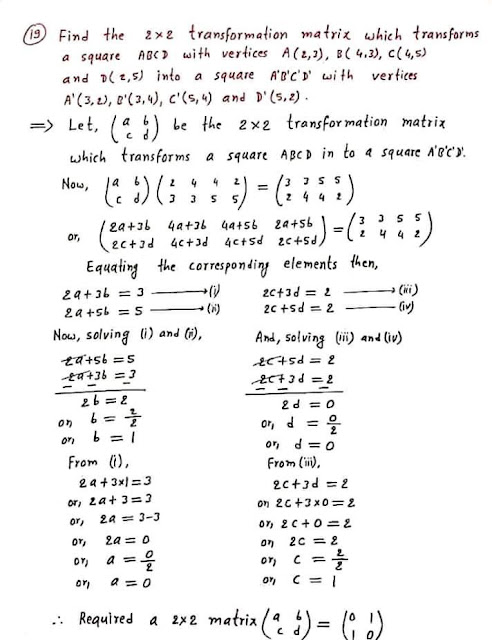 (19) Find the 2×2 transformation matrix which transforms
a square ABCD with vertices A(2,3), B(4,3), C(4,5)
and D(2,5) into a square A'B'C'D' with vertices
A'(3,2), B'(3,4), C'(5,4) and D'(5,2).
⇒ Let, (a b
c d) be the 2×2 transformation matrix
which transforms a square ABCD in to a square A'B'C'D'.
Now, (a b
c d) (2 4 4 2
3 3 5 5) = (3 3 5 5
2 4 4 2)
or, (2a+3b 4a+3b 4a+5b 2a+5b
2c+3d 4c+3d 4c+5d 2c+5d) = (3 3 5 5
2 4 4 2)
Equating the corresponding elements then,
2a+3b = 3 ⟶ (i)
2a+5b = 5 ⟶ (ii)
Now, solving (i) and (ii),
2a+5b = 5
2a+3b = 3
− − −
2b = 2
or, b = 2/2
or, b = 1
From (i),
2a+3×1=3
or, 2a+3=3
or, 2a = 3-3
or, 2a = 0
or, a = 0/2
or, a = 0
2c+3d = 2 ⟶ (iii)
2c+5d = 2 ⟶ (iv)
And, solving (iii) and (iv)
2c+5d = 2
2c+3d = 2
− − −
2d = 0
or, d = 0/2
or, d = 0
From (iii),
2c+3d = 2
or, 2c+3×0=2
or, 2c+0=2
or, 2c = 2
or, c = 2/2
or, c = 1
∴ Required a 2×2 matrix (a b
c d) = (0 1
1 0)